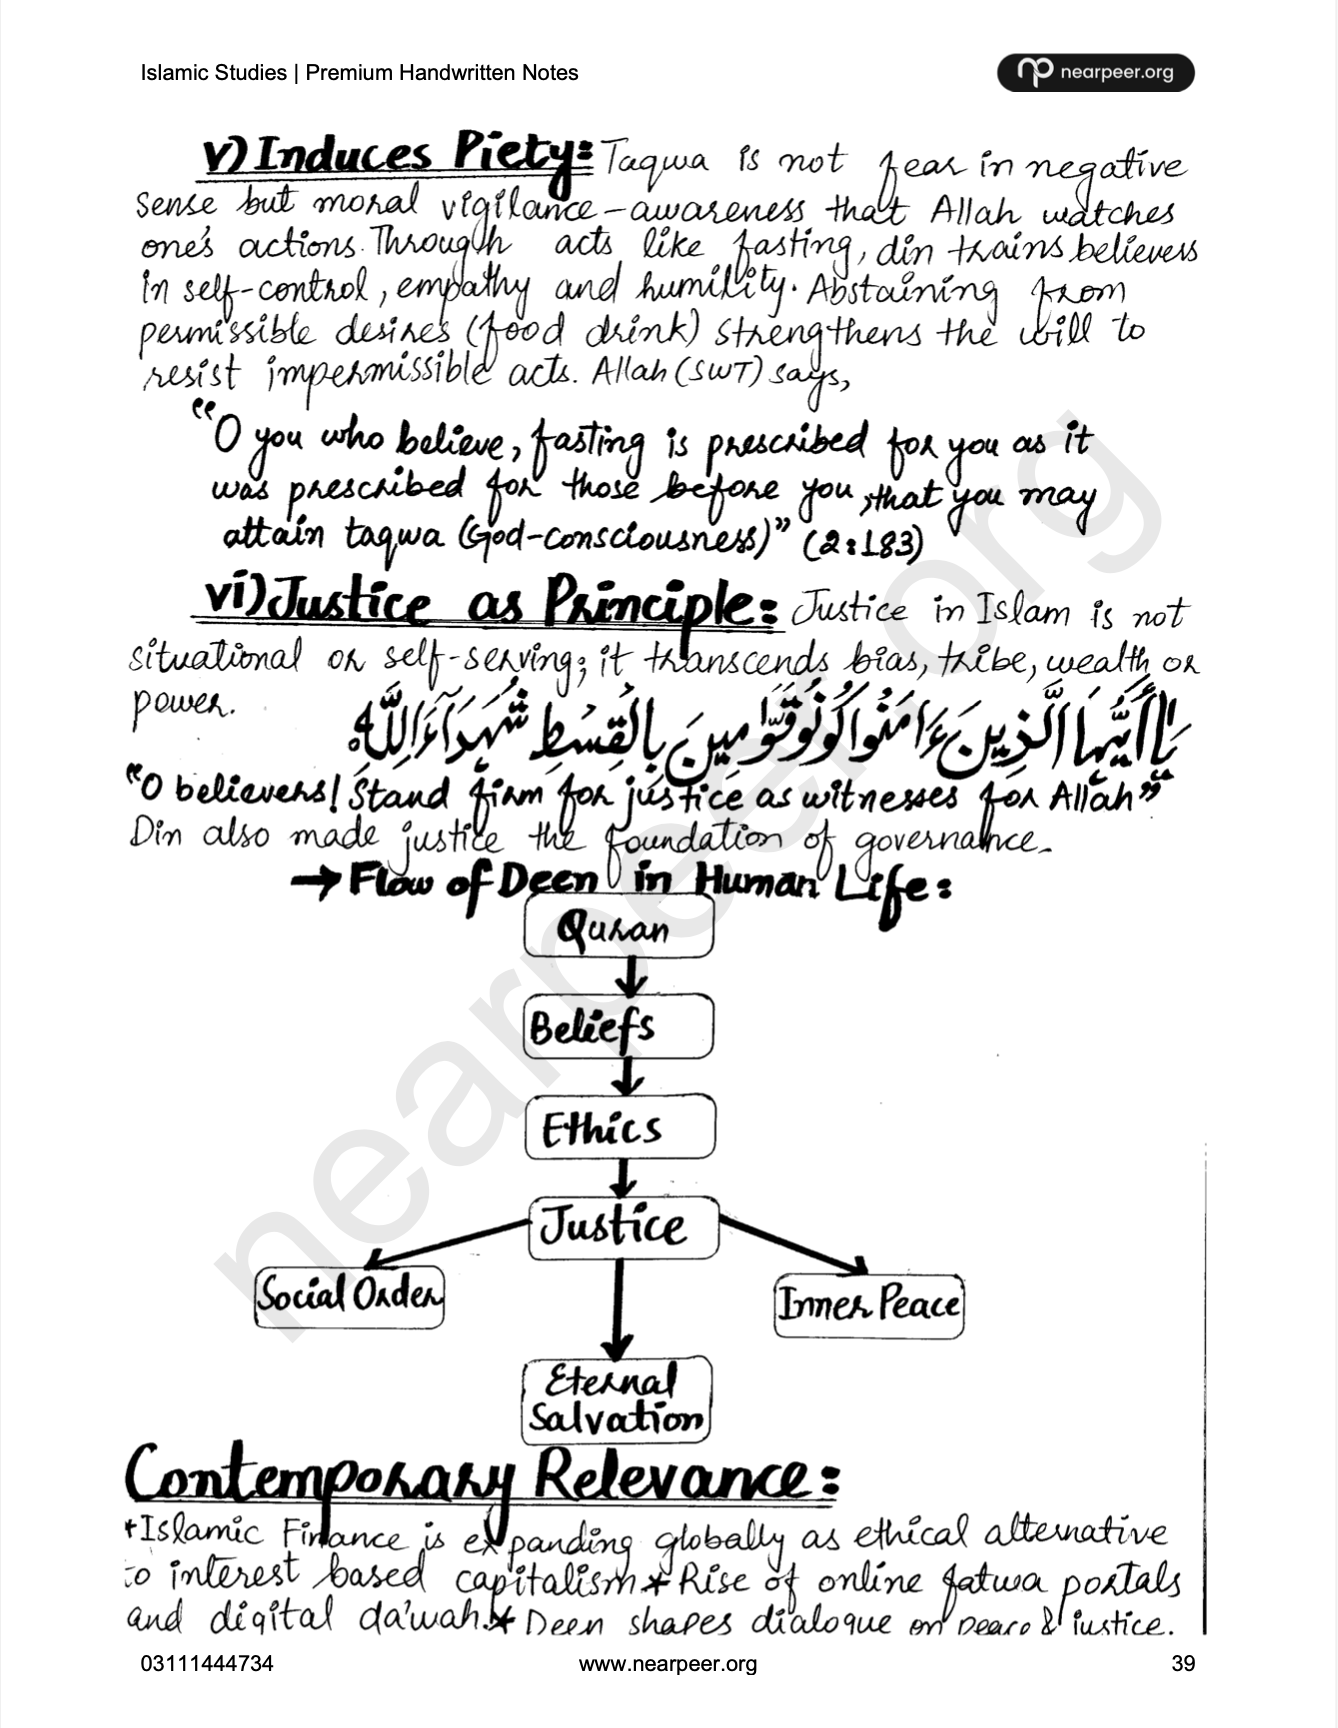 Islamic Studies | Premium Handwritten Notes
nearpeer.org
v) Induces Piety: Taqwa is not fear in negative
sense but moral vigilance - awareness that Allah watches
one's actions. Through acts like fasting, din trains believers
in self-control, empathy and humility. Abstaining from
permissible desires (food drink) strengthens the will to
resist impermissible acts. Allah (SWT) says,
"O you who believe, fasting is prescribed for you as it
was prescribed for those before you, that you may
attain taqwa (God-consciousness)" (2:183)
vi) Justice as Principle: Justice in Islam is not
situational or self-serving; it transcends bias, tribe, wealth or
power.
يَا أَيُّهَا الَّذِينَ ءَامَنُوا كُونُوا قَوَّامِينَ بِالْقِسْطِ شُهَدَآءَ لِلَّهِ
"O believers! Stand firm for justice as witnesses for Allah"
Din also made justice the foundation of governance.
→ Flow of Deen in Human Life:
Quran
Beliefs
Ethics
Justice
Social Order
Inner Peace
Eternal
Salvation
Contemporary Relevance:
*Islamic Finance is expanding globally as ethical alternative
to interest based capitalism * Rise of online fatwa portals
and digital da'wah. * Deen shapes dialogue on peace & justice.
03111444734
www.nearpeer.org
39
nearpeer.org